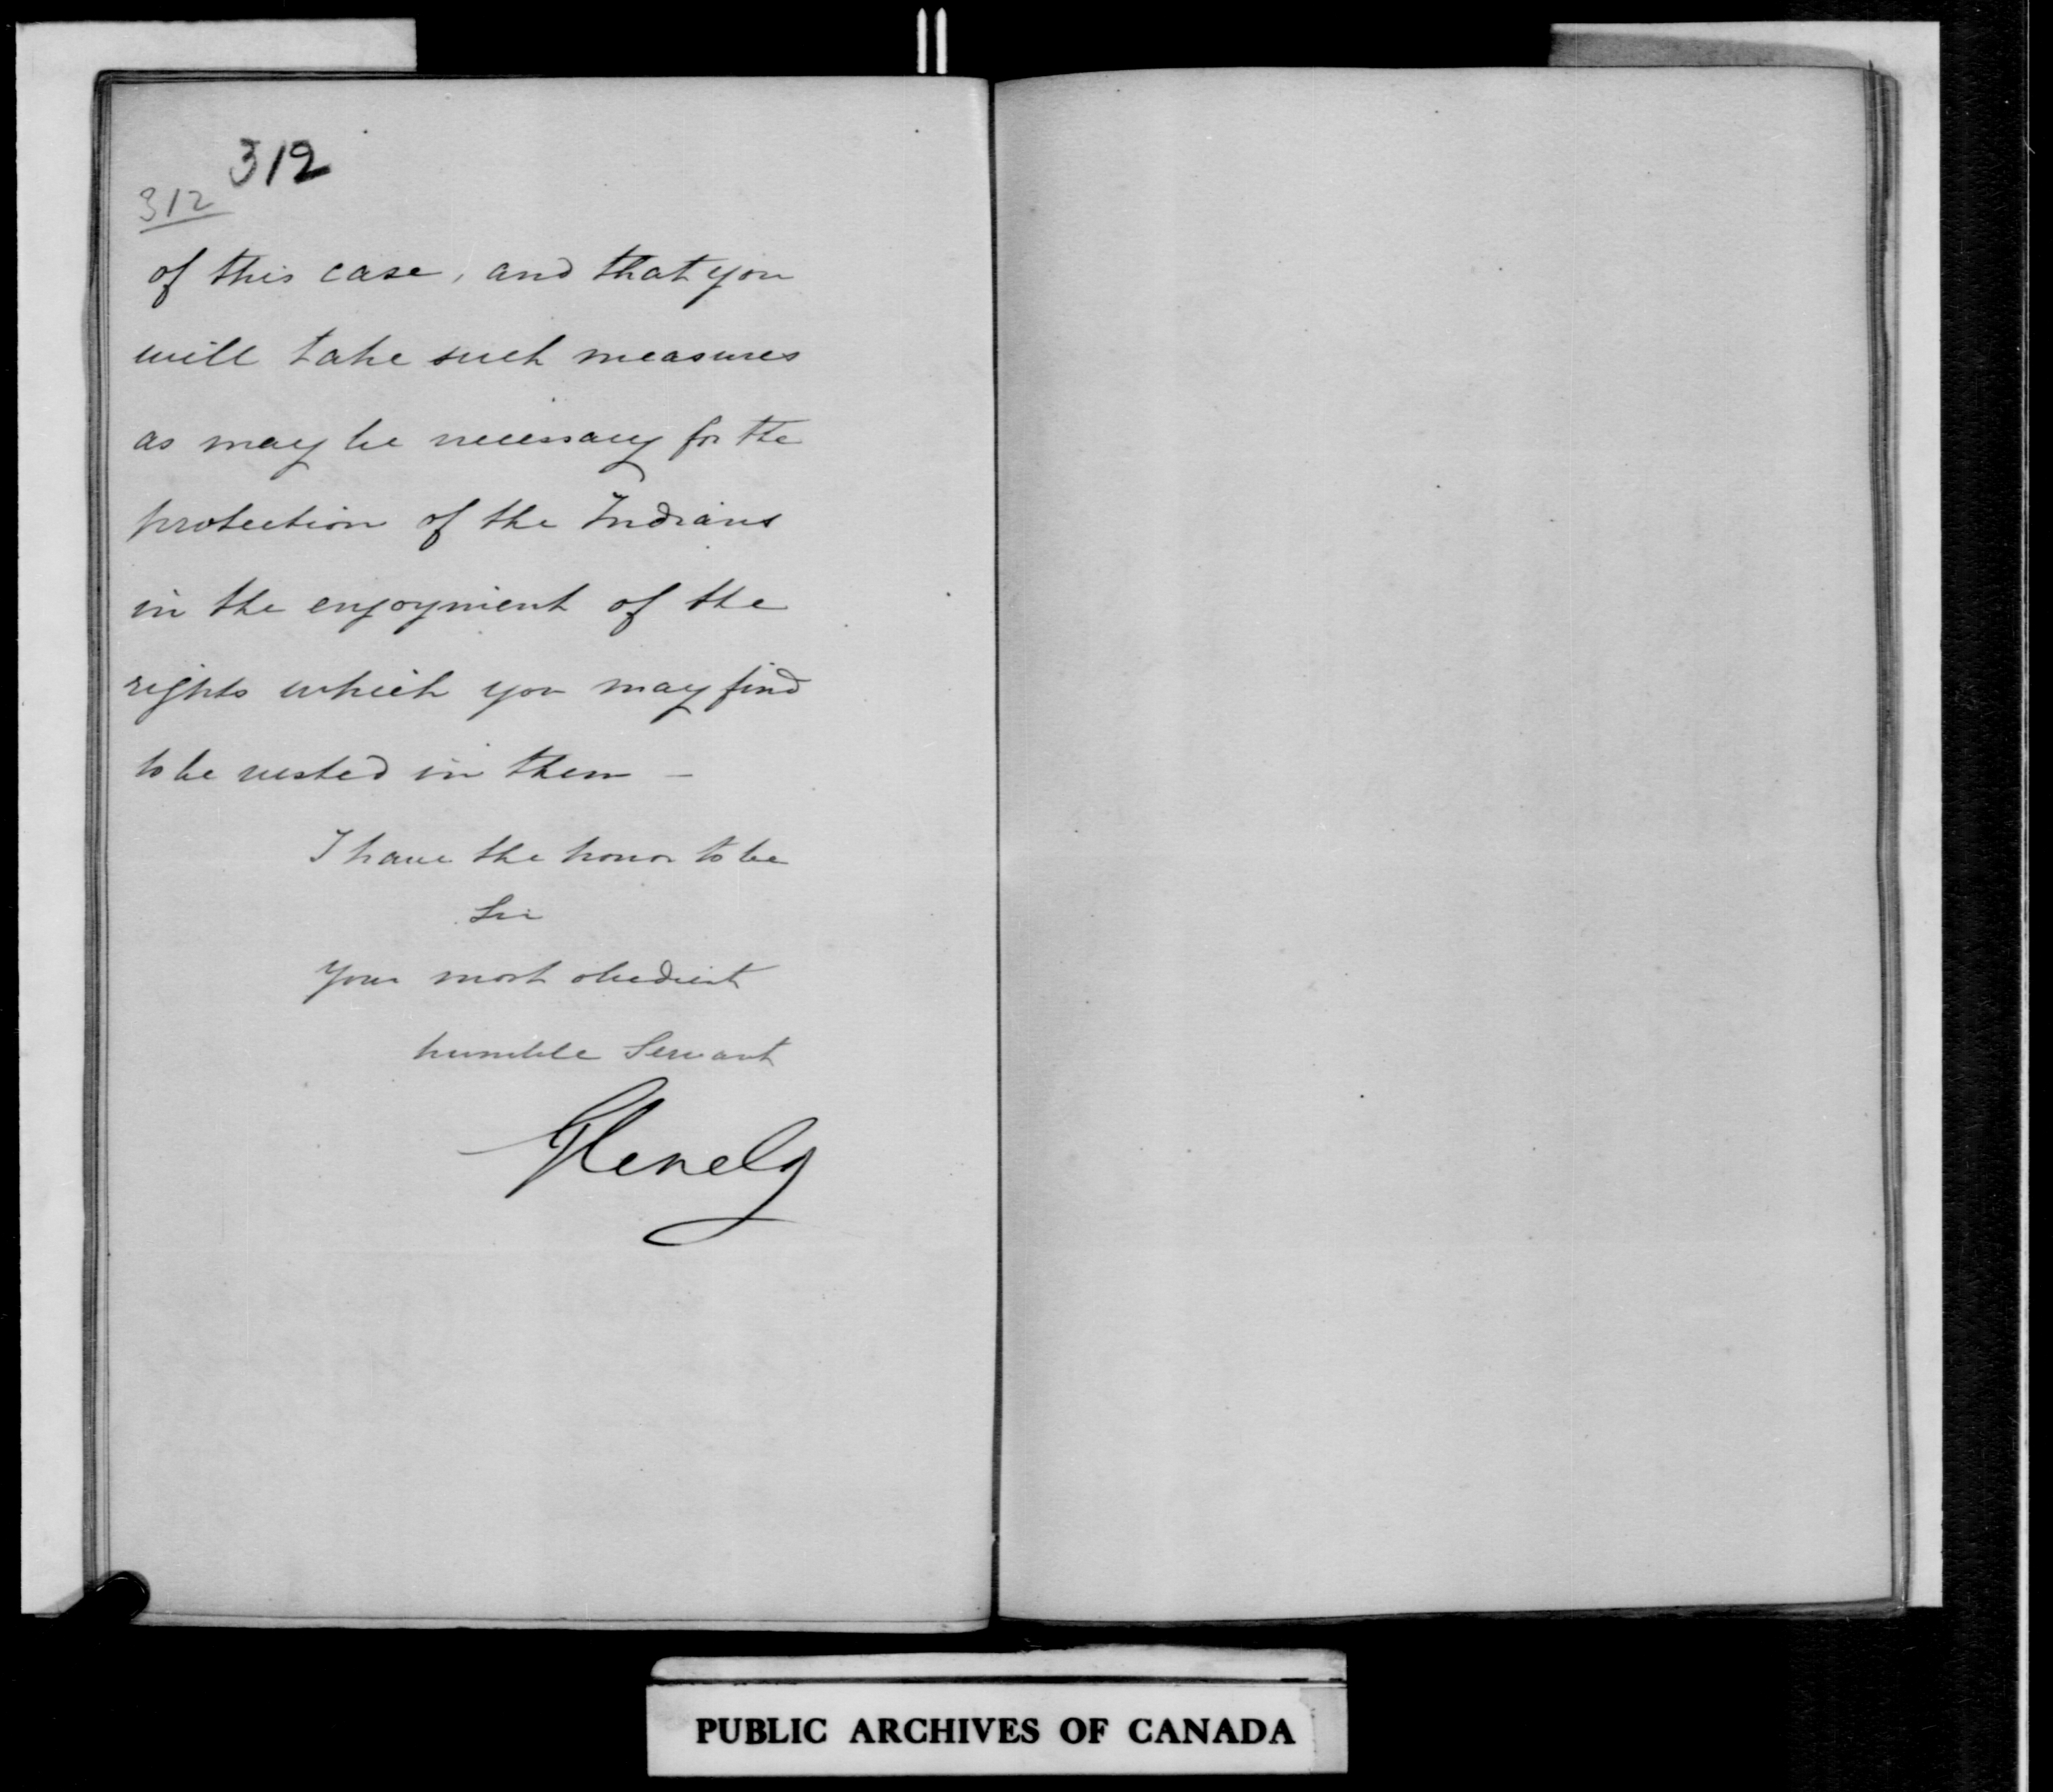 312
312
of this case, and that you
will take such measures
as may be necessary for the
protection of the Indians
in the enjoyment of the
rights which you may find
to be vested in them —
I have the honor to be
Sir
Your most obedient
humble Servant
Glenelg
PUBLIC ARCHIVES OF CANADA